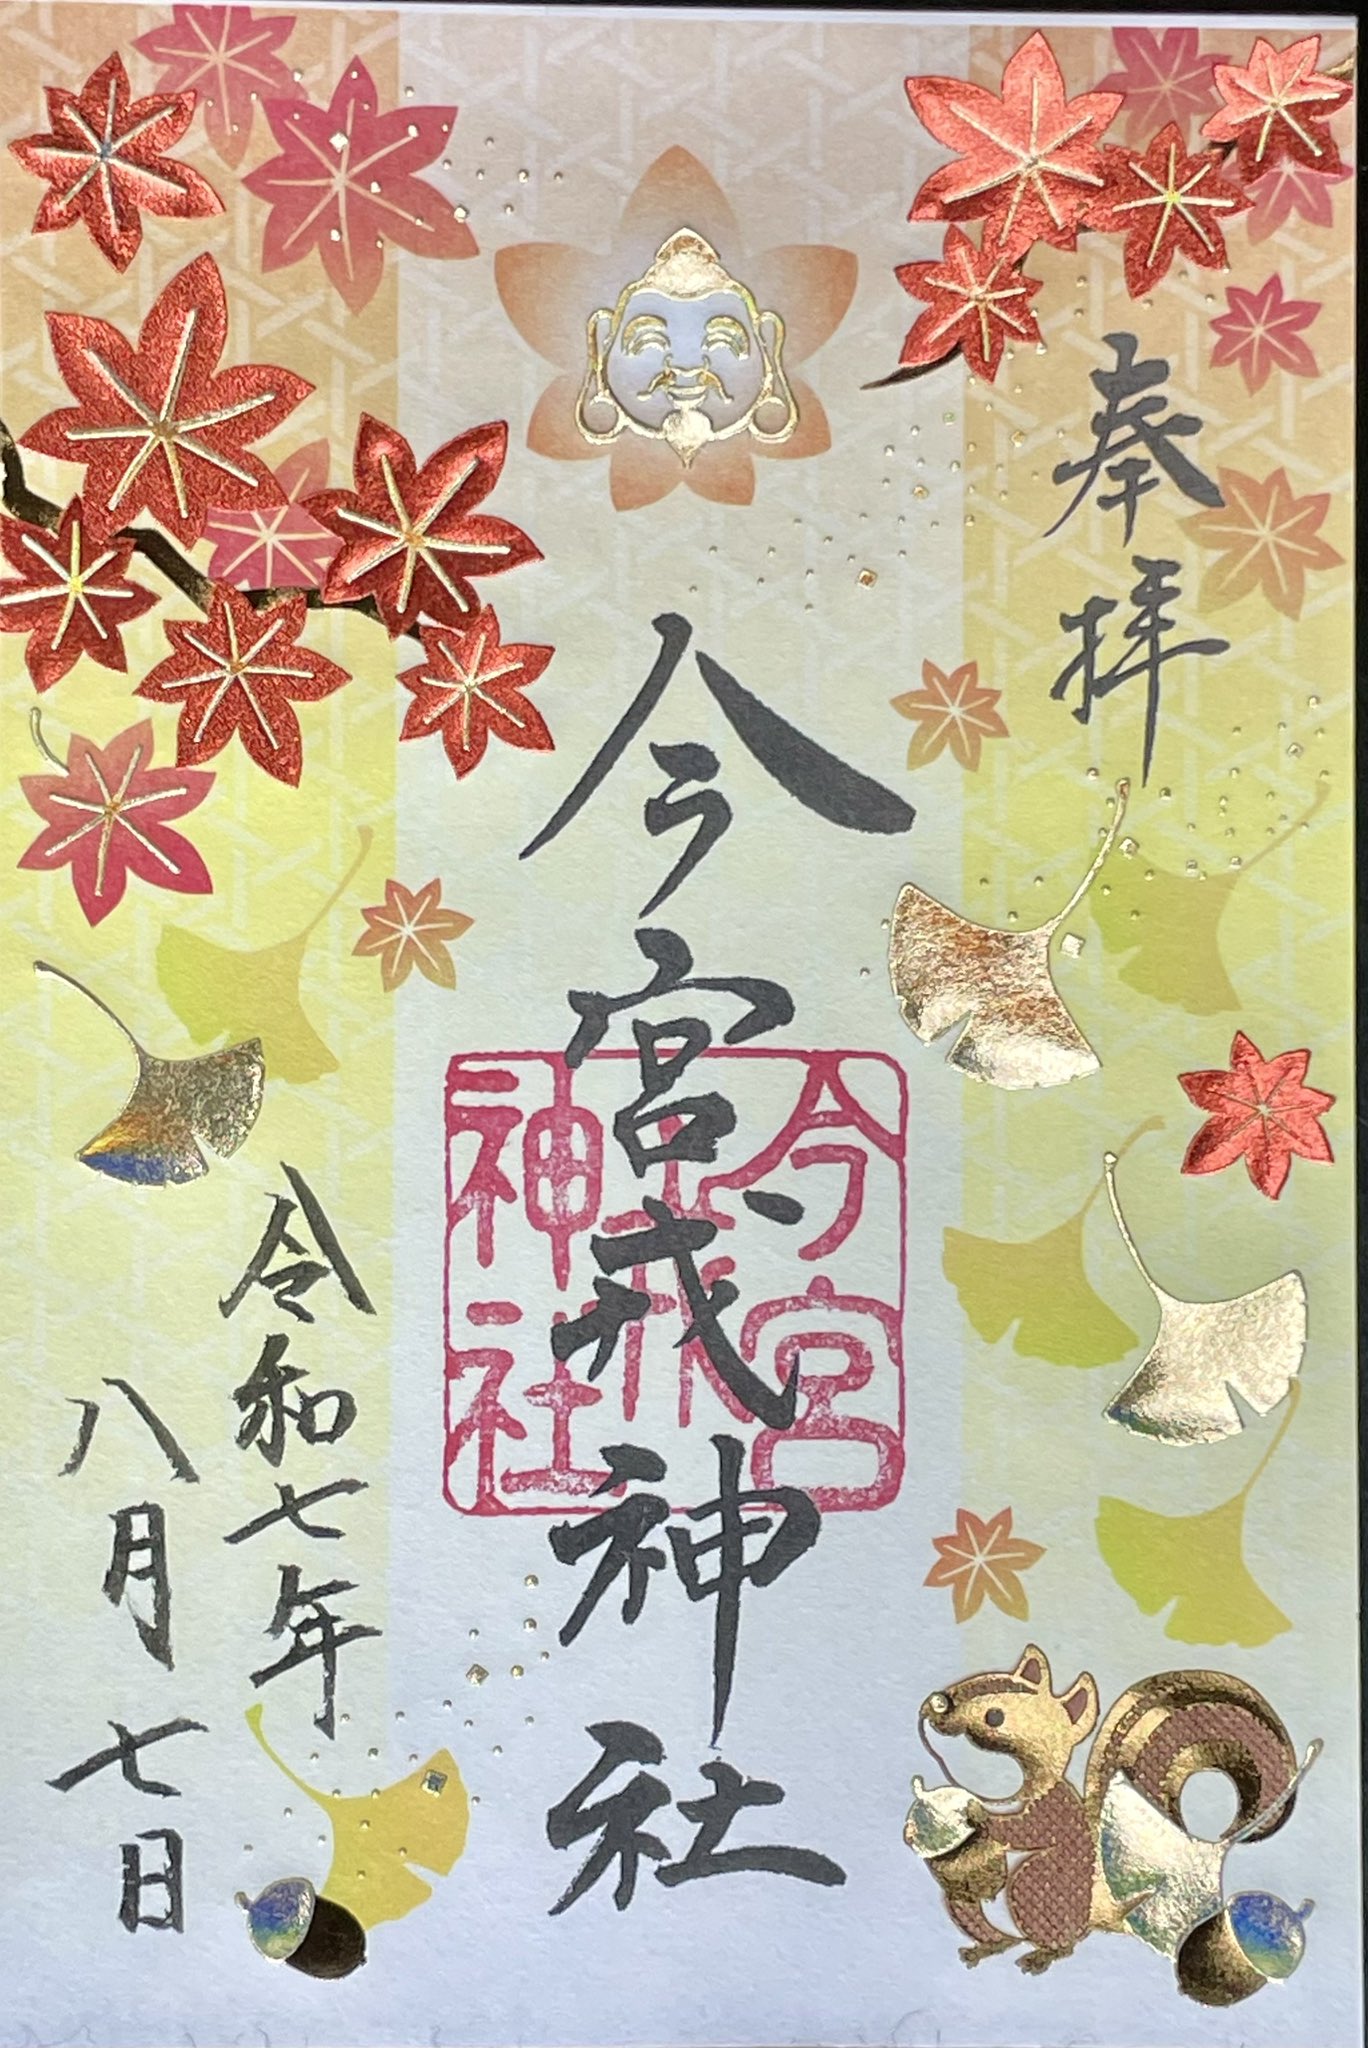 奉拝
今宮戎神社
今宮
戎
神社
令和七年
八月七日